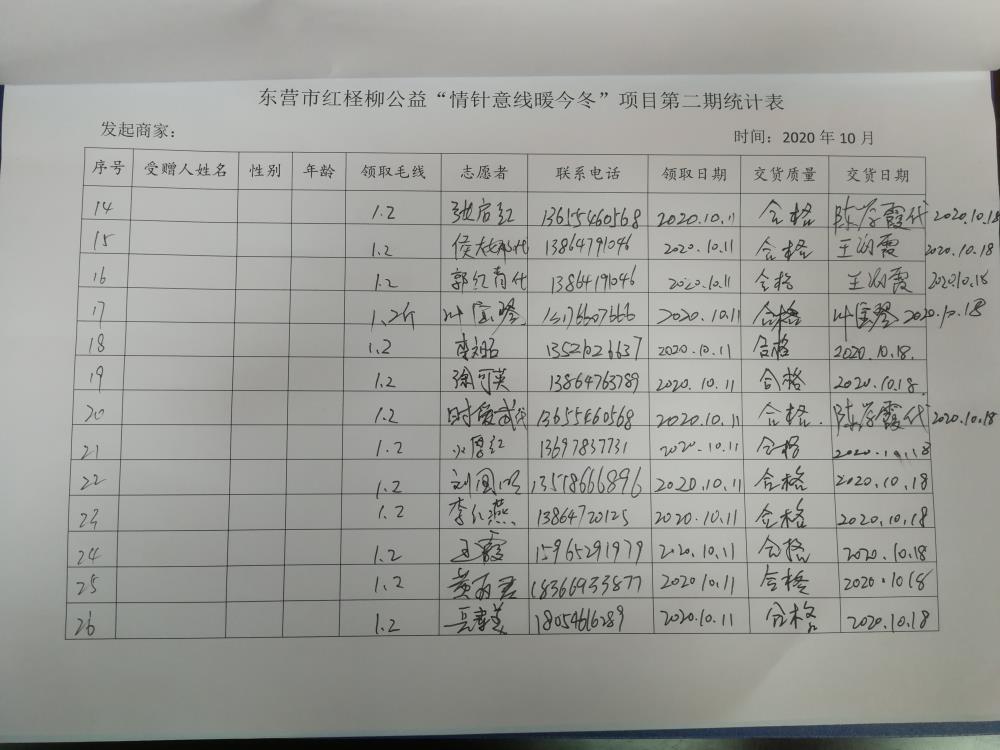 东营市红柽柳公益“情针意线暖今冬”项目第二期统计表
发起商家： 时间：2020年10月
序号 受赠人姓名 性别 年龄 领取毛线 志愿者 联系电话 领取日期 交货质量 交货日期
14 1.2 张启红 13655460568 2020.10.11 合格 陈学霞代 2020.10.18
15 1.2 侯 代 13864791046 2020.10.11 合格 王 霞 2020.10.18
16 1.2 郭红青代 13864791046 2020.10.11 合格 王 霞 2020.10.18
17 1.2斤 叶宝琴 2020.10.11 合格 叶宝琴 2020.10.18
18 1.2 2020.10.11 合格 2020.10.18.
19 1.2 徐可英 13864763789 2020.10.11 合格 2020.10.18.
20 1.2 时爱武代 13655460568 2020.10.11 合格. 陈学霞代 2020.10.18
21 1.2 红 13697837731 2020.10.11 合格 2020.10.18
22 1.2 刘 13518666896 2020.10.11 合格 2020.10.18
23 1.2 李红燕 13864720125 2020.10.11 合格 2020.10.18
24 1.2 王霞 15965291979 2020.10.11 合格 2020.10.18
25 1.2 黄 君 18366933877 2020.10.11 合格 2020.10.18
26 1.2 18054616289 2020.10.11 合格 2020.10.18